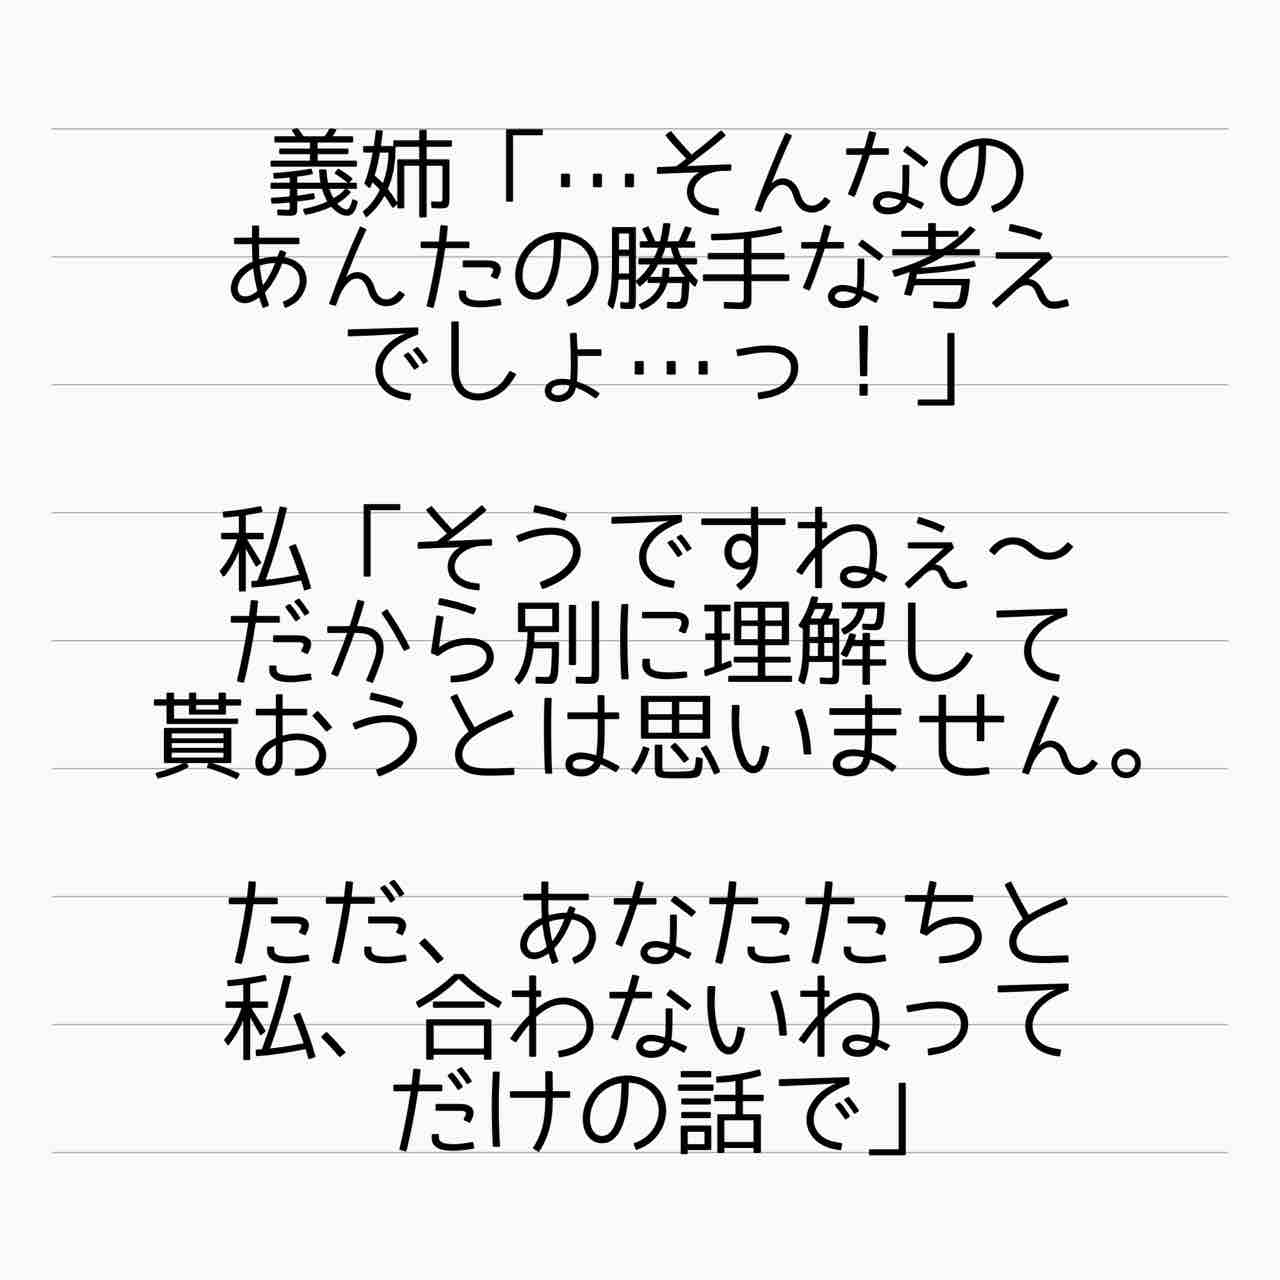 義姉「…そんなの
あんたの勝手な考え
でしょ…っ！」
私「そうですねぇ〜
だから別に理解して
貰おうとは思いません。
ただ、あなたたちと
私、合わないねって
だけの話で」